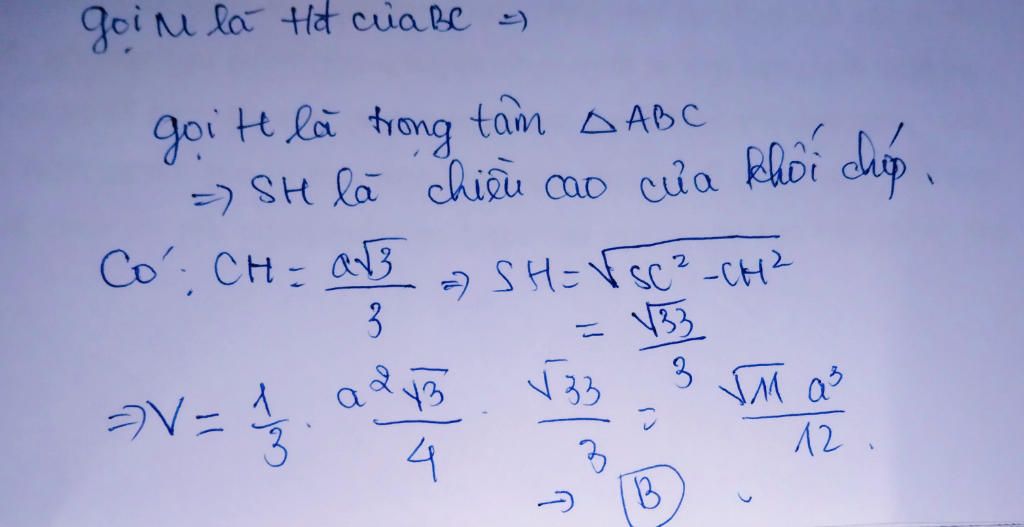 gọi M là Hđ của BC ⇒
gọi H là trọng tâm △ABC
⇒ SH là chiều cao của khối chóp.
Có: CH = a√3/3 ⇒ SH = √(SC² - CH²)
= √33/3
⇒ V = 1/3 . a²√3/4 . √33/3 = √11 a³/12 .
→ B